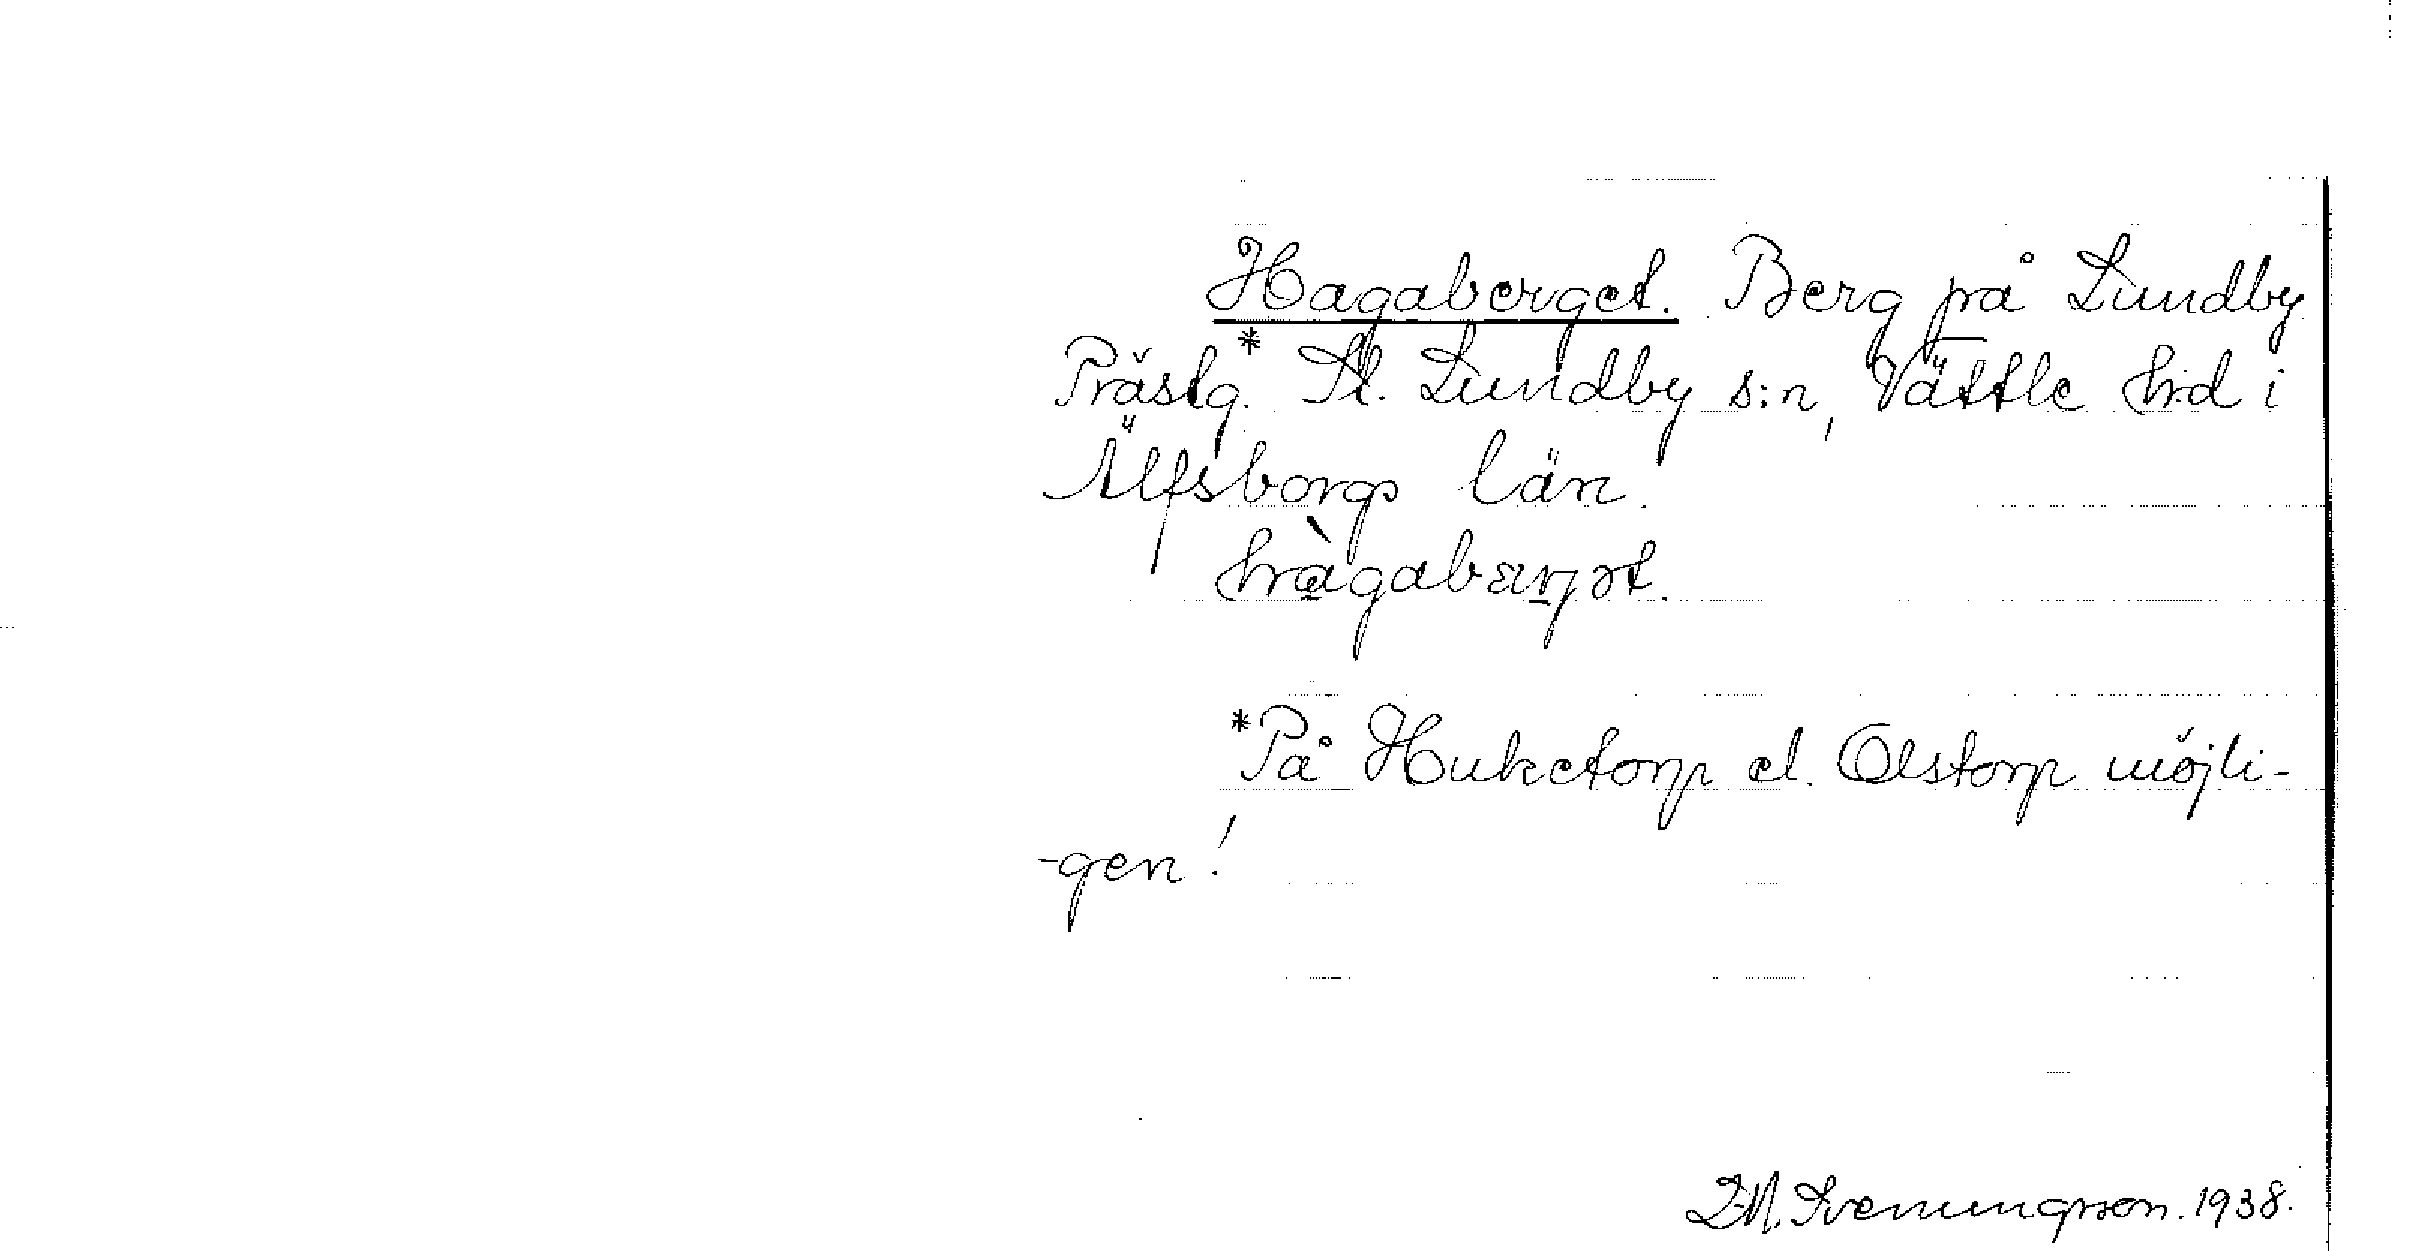 Hagaberget. Berg på Lundby
Prästg.* St. Lundby s:n, Vättle hrd i
Älfsborgs län.

*På Huketorp el. Olstorp möjli-
-gen!
Svenungsson. 1938.